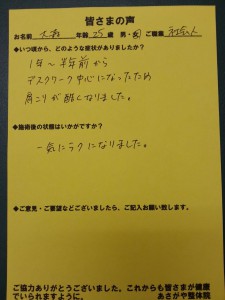 皆さまの声
お名前 大森 年齢 25 歳 男・女 ご職業 社会人
◆いつ頃から、どのような症状がありましたか?
1年〜半年前から
デスクワーク中心になったため
肩こりが酷くなりました。
◆施術後の状態はいかがですか?
一気にラクになりました。
◆ご意見・ご要望などございましたら、ご記入お願い致します。
ご協力ありがとうございました。これからも皆さまが健康
でいられますように。 あさがや整体院